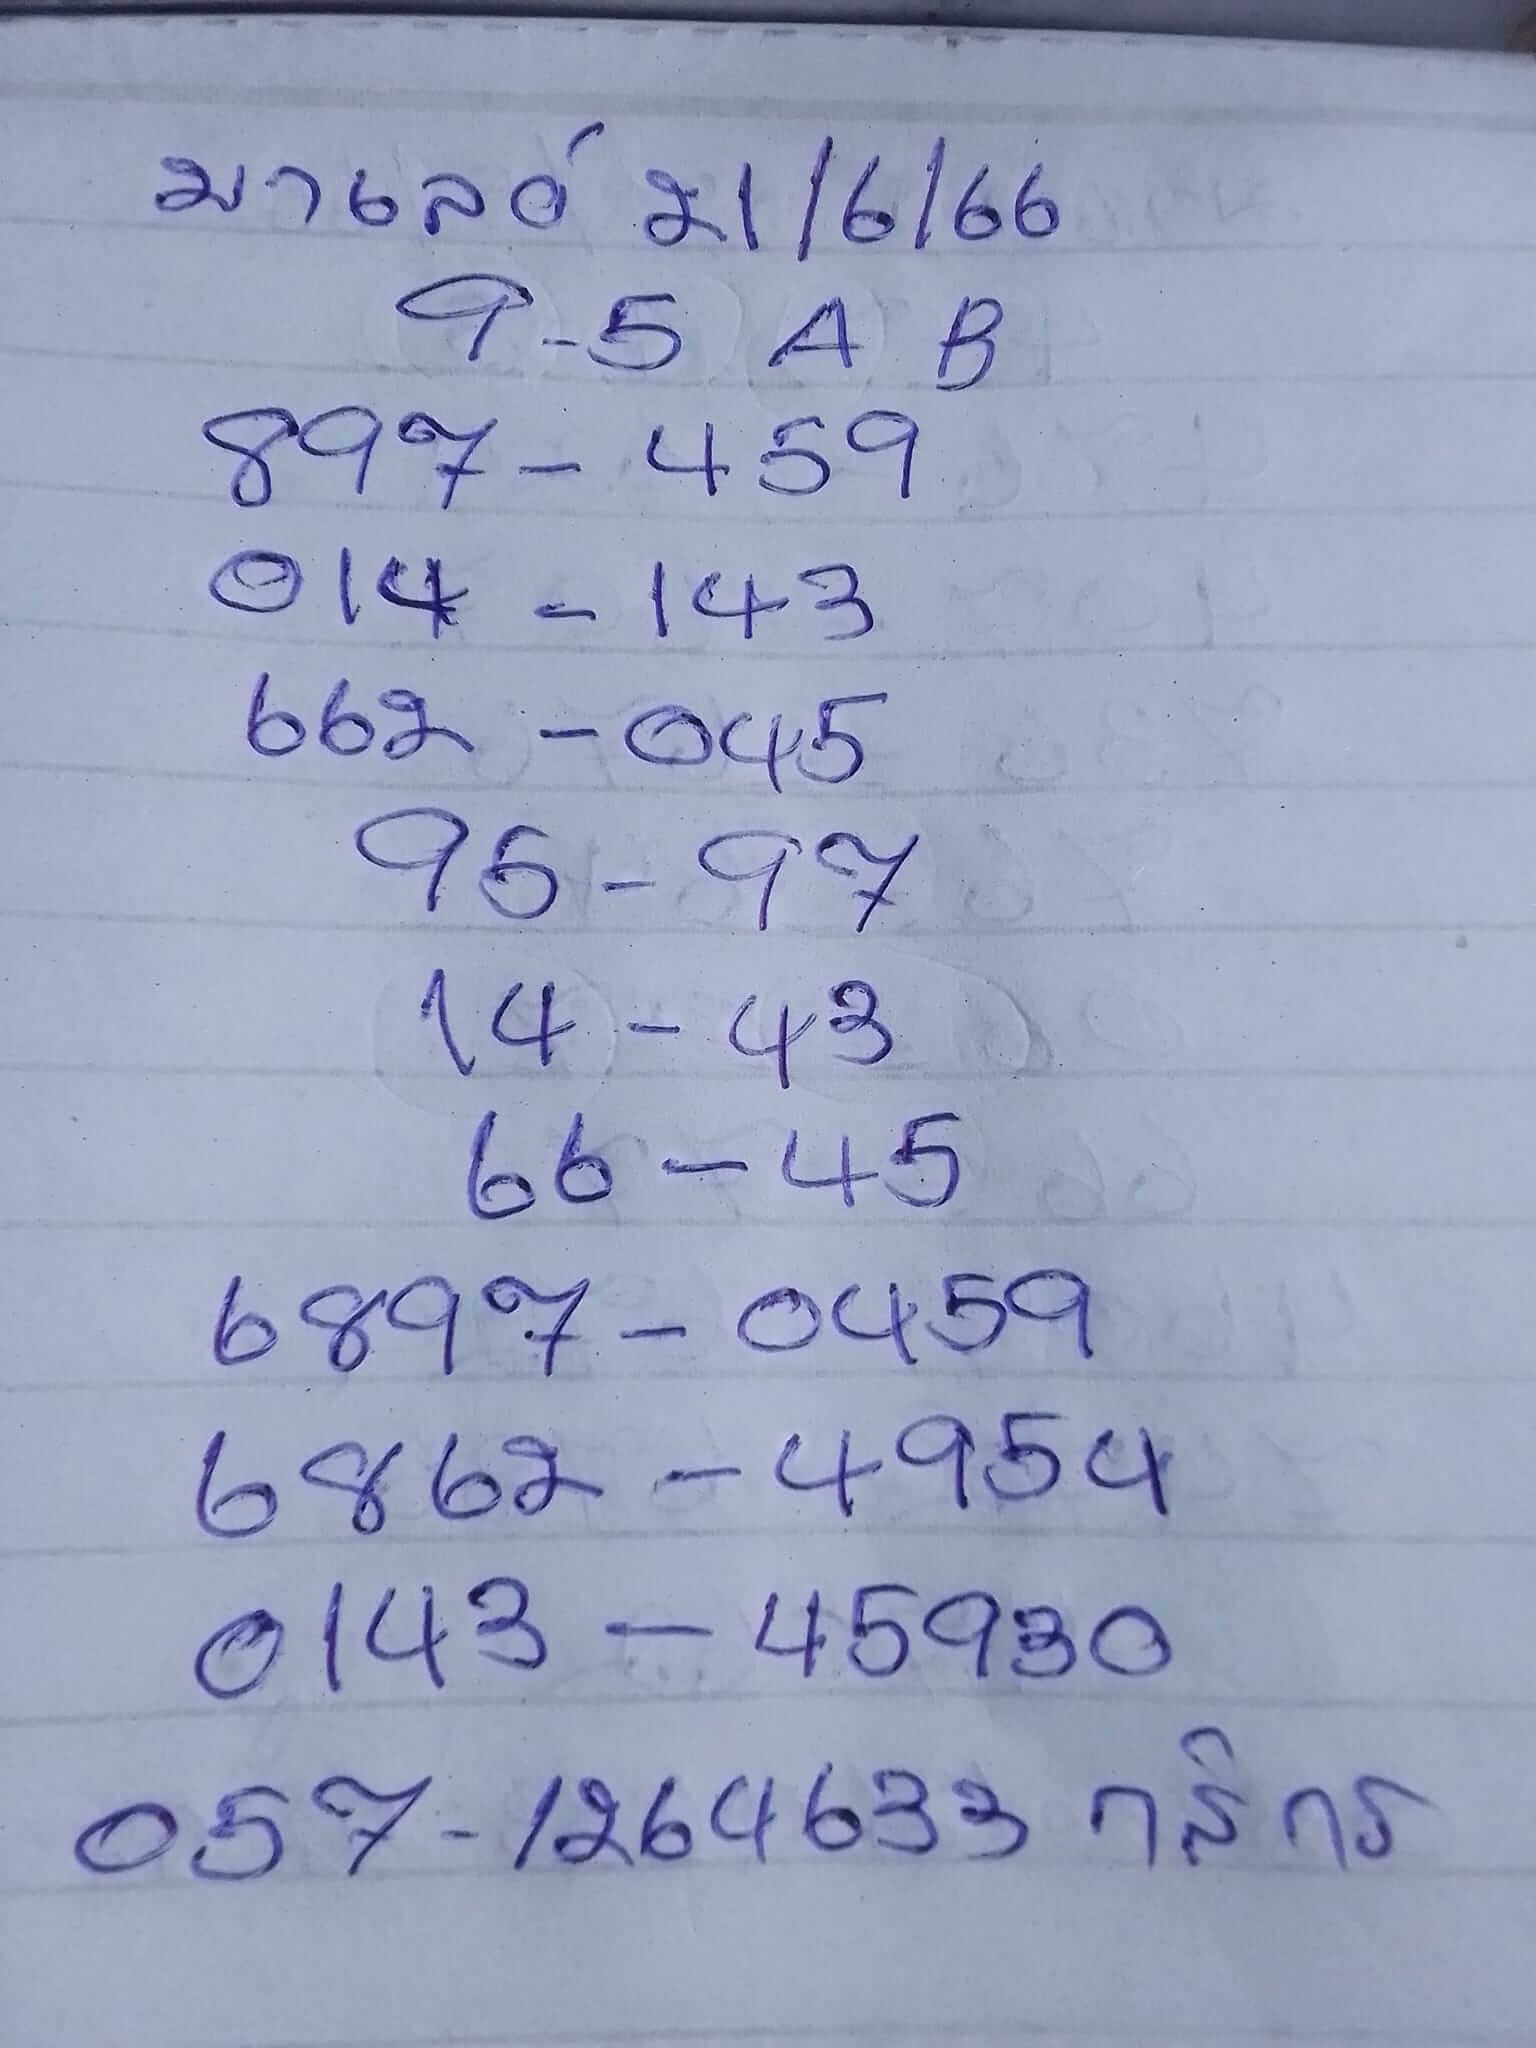 มาเลย์ 21/6/66
9-5 A B
897 - 459
014 - 143
662 - 045
95 - 97
14 - 43
66 - 45
6897 - 0459
6862 - 4954
0143 - 45930
057-1264633 กสิกร